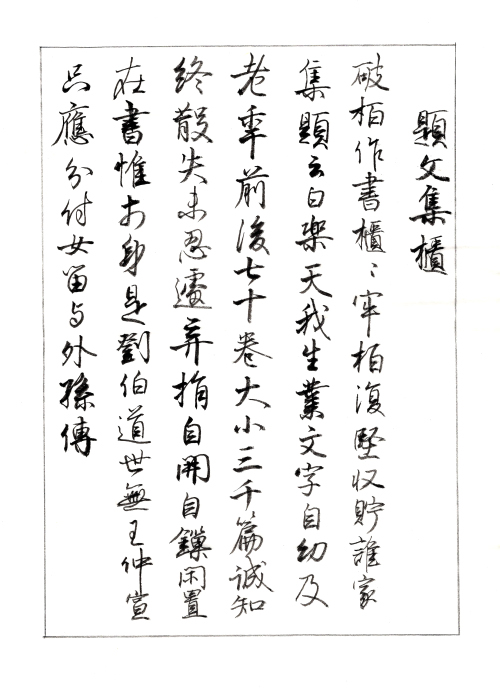 題文集櫃
破柏作書櫃〻牢柏復堅収貯誰家
集題云白樂天我生業文字自幼及
老年前後七十卷大小三千篇誠知
終散失未忍遽弃捐自開自鏁閉置
在書帷前身是劉伯道世無王仲宣
只應分付女留与外孫傳